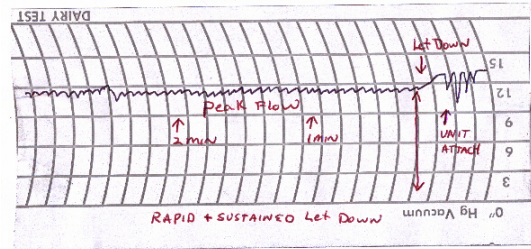 DAIRY TEST
Let Down
15
12
Peak Flow
9
2 min
1 min
UNIT
ATTACH
6
3
0" Hg Vacuum
RAPID + SUSTAINED Let Down